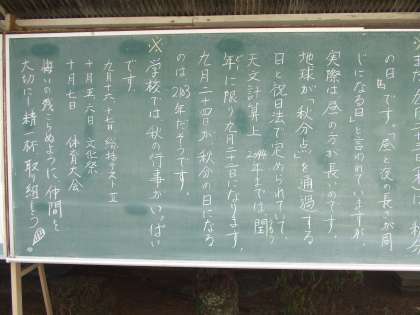 の日」です。「昼と夜の長さが同
じになる日」と言われていますが、
実際は昼の方が長いのです。
地球が「秋分点」を通過する
日と祝日法で定められていて、
天文計算上2044年までは閏
うるう
年に限り九月二十二日になります。
九月二十四日が秋分の日になる
のは2103年だそうです。
※学校では秋の行事がいっぱい
です。
九月十六・十七日
十月五・六日 文化祭
十月七日 体育大会
悔いの残こらぬように、仲間と
大切にし精一杯取り組もう